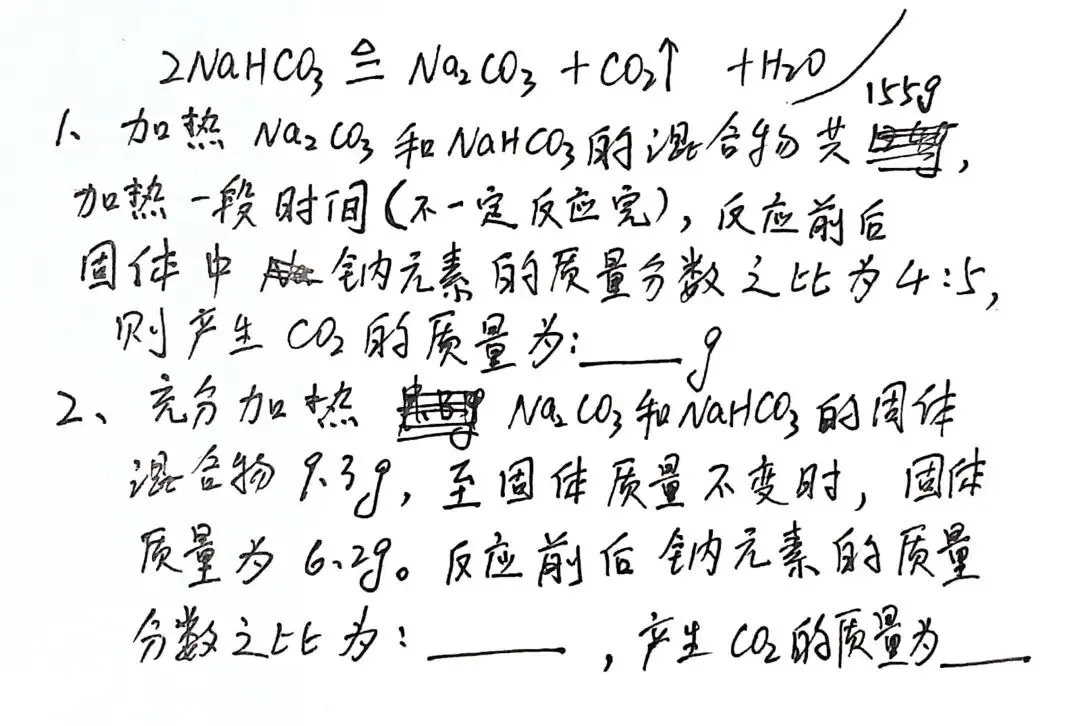 2NaHCO₃ ≜ Na₂CO₃ + CO₂↑ + H₂O
1、加热 Na₂CO₃ 和 NaHCO₃的混合物共 155g,
加热一段时间(不一定反应完), 反应前后
固体中 钠元素的质量分数之比为4:5,
则产生 CO₂的质量为:____g
2、充分加热 Na₂CO₃和NaHCO₃的固体
混合物9.3g, 至固体质量不变时, 固体
质量为6.2g。反应前后钠元素的质量
分数之比为:____, 产生CO₂的质量为____